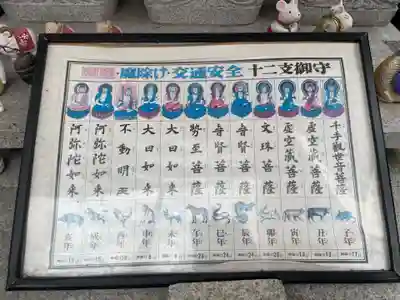 魔除け・交通安全 十二支御守
千手観世音菩薩
虚空蔵菩薩
虚空蔵菩薩
文珠菩薩
普賢菩薩
普賢菩薩
勢至菩薩
大日如来
大日如来
不動明王
阿弥陀如来
阿弥陀如来
子年
丑年
寅年
卯年
辰年
巳年
午年
未年
申年
酉年
戌年
亥年